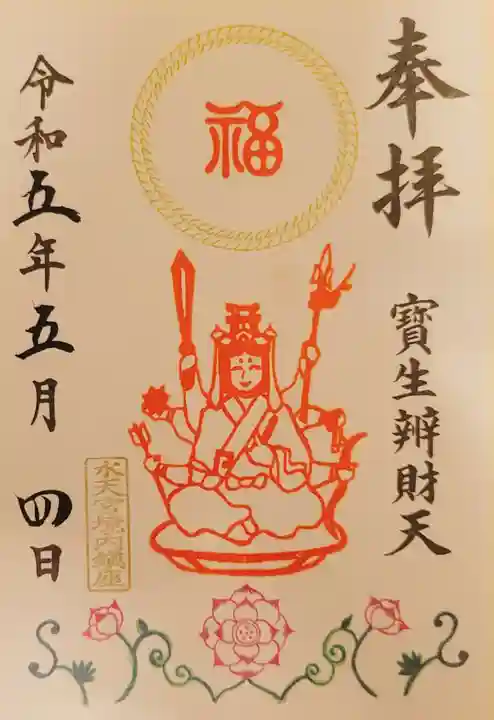 奉拝
寶生辨財天
福
令和五年五月四日
水天宮境内鎮座